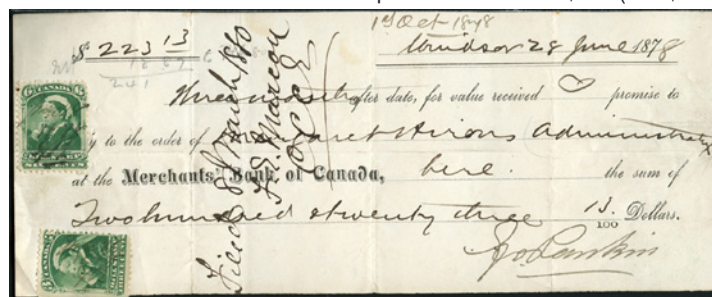 1st Oct 1878
$ 223 13
Windsor 28 June 1878
241
Three months after date, for value received I promise to
pay to the order of Margaret Hirons Administratrix
at the Merchants' Bank of Canada, here. the sum of
Two hundred & twenty three 13/100 Dollars.
Jo Rankin
Filed 8 March 
CANADA
CANADA